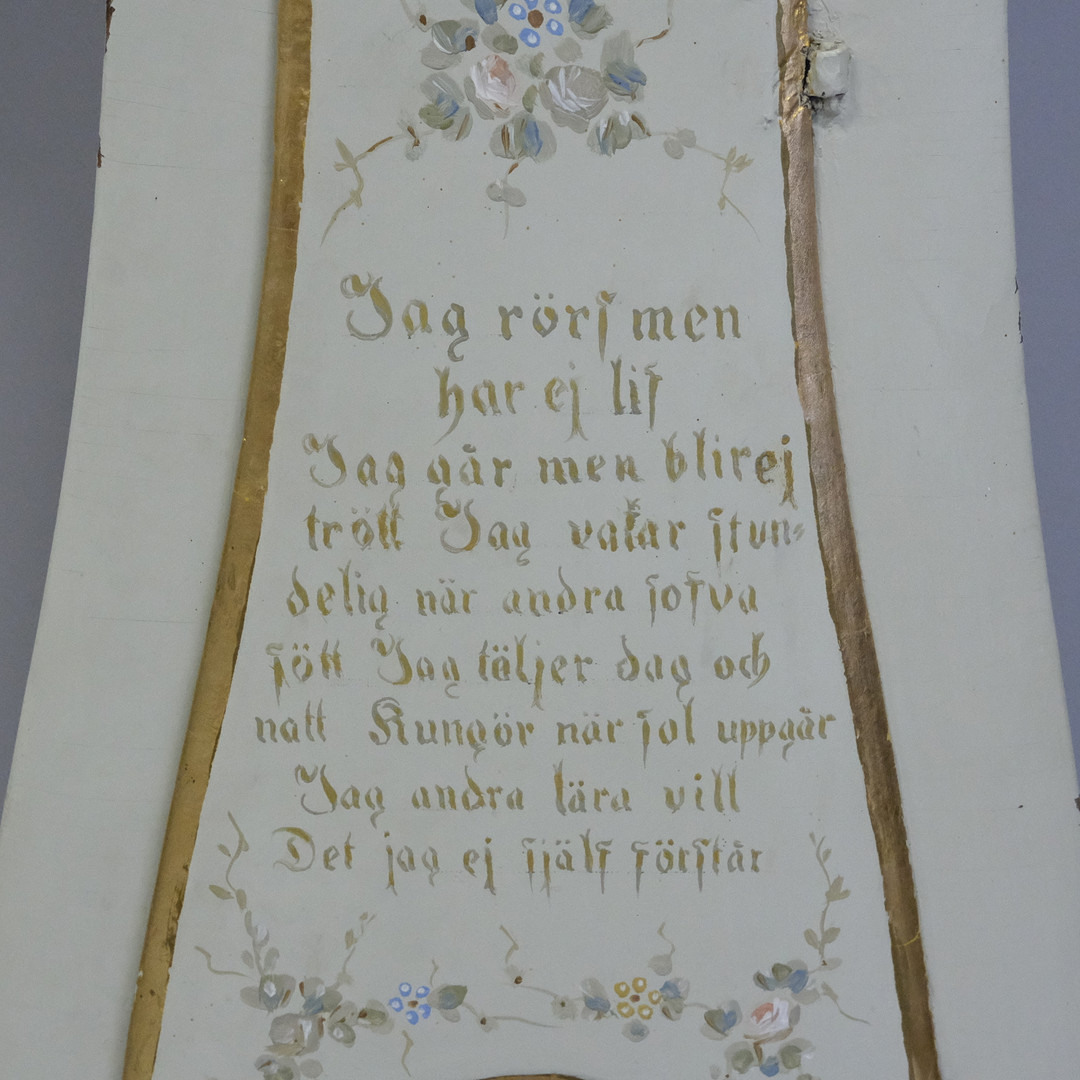 Jag rörs men
har ej lif
Jag går men blir ej
trött Jag vakar stun-
delig när andra sofva
sött Jag täljer dag och
natt Kungör när sol uppgår
Jag andra lära vill
Det jag ej själt förstår